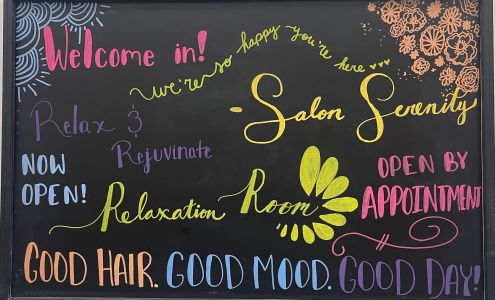 Welcome in!
we're so happy you're here
Salon Serenity
Relax &
Rejuvinate
NOW
OPEN!
Relaxation Room
OPEN BY
APPOINTMENT
GOOD HAIR. GOOD MOOD. GOOD DAY!